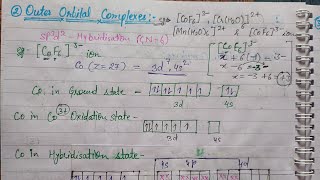 ② Outer Orbital Complexes:- eg [CoF6]3-, [Cr(H2O)]2+
[Mn(H2O)6]2+ & [FeF6]3- ion
sp3d2 - Hybridisation (CN=6)
eg- [CoF6]3- ion
[CoF6]3-
x + 6(-1) = -3
x - 6 = -3
x = -3 + 6 = +3
Co (Z=27) = 3d7, 4s2
Co in Ground state -
3d 4s
Co in Co 3+ Oxidation state -
3d 4s
Co in Hybridisation state -
4s 4p 4d